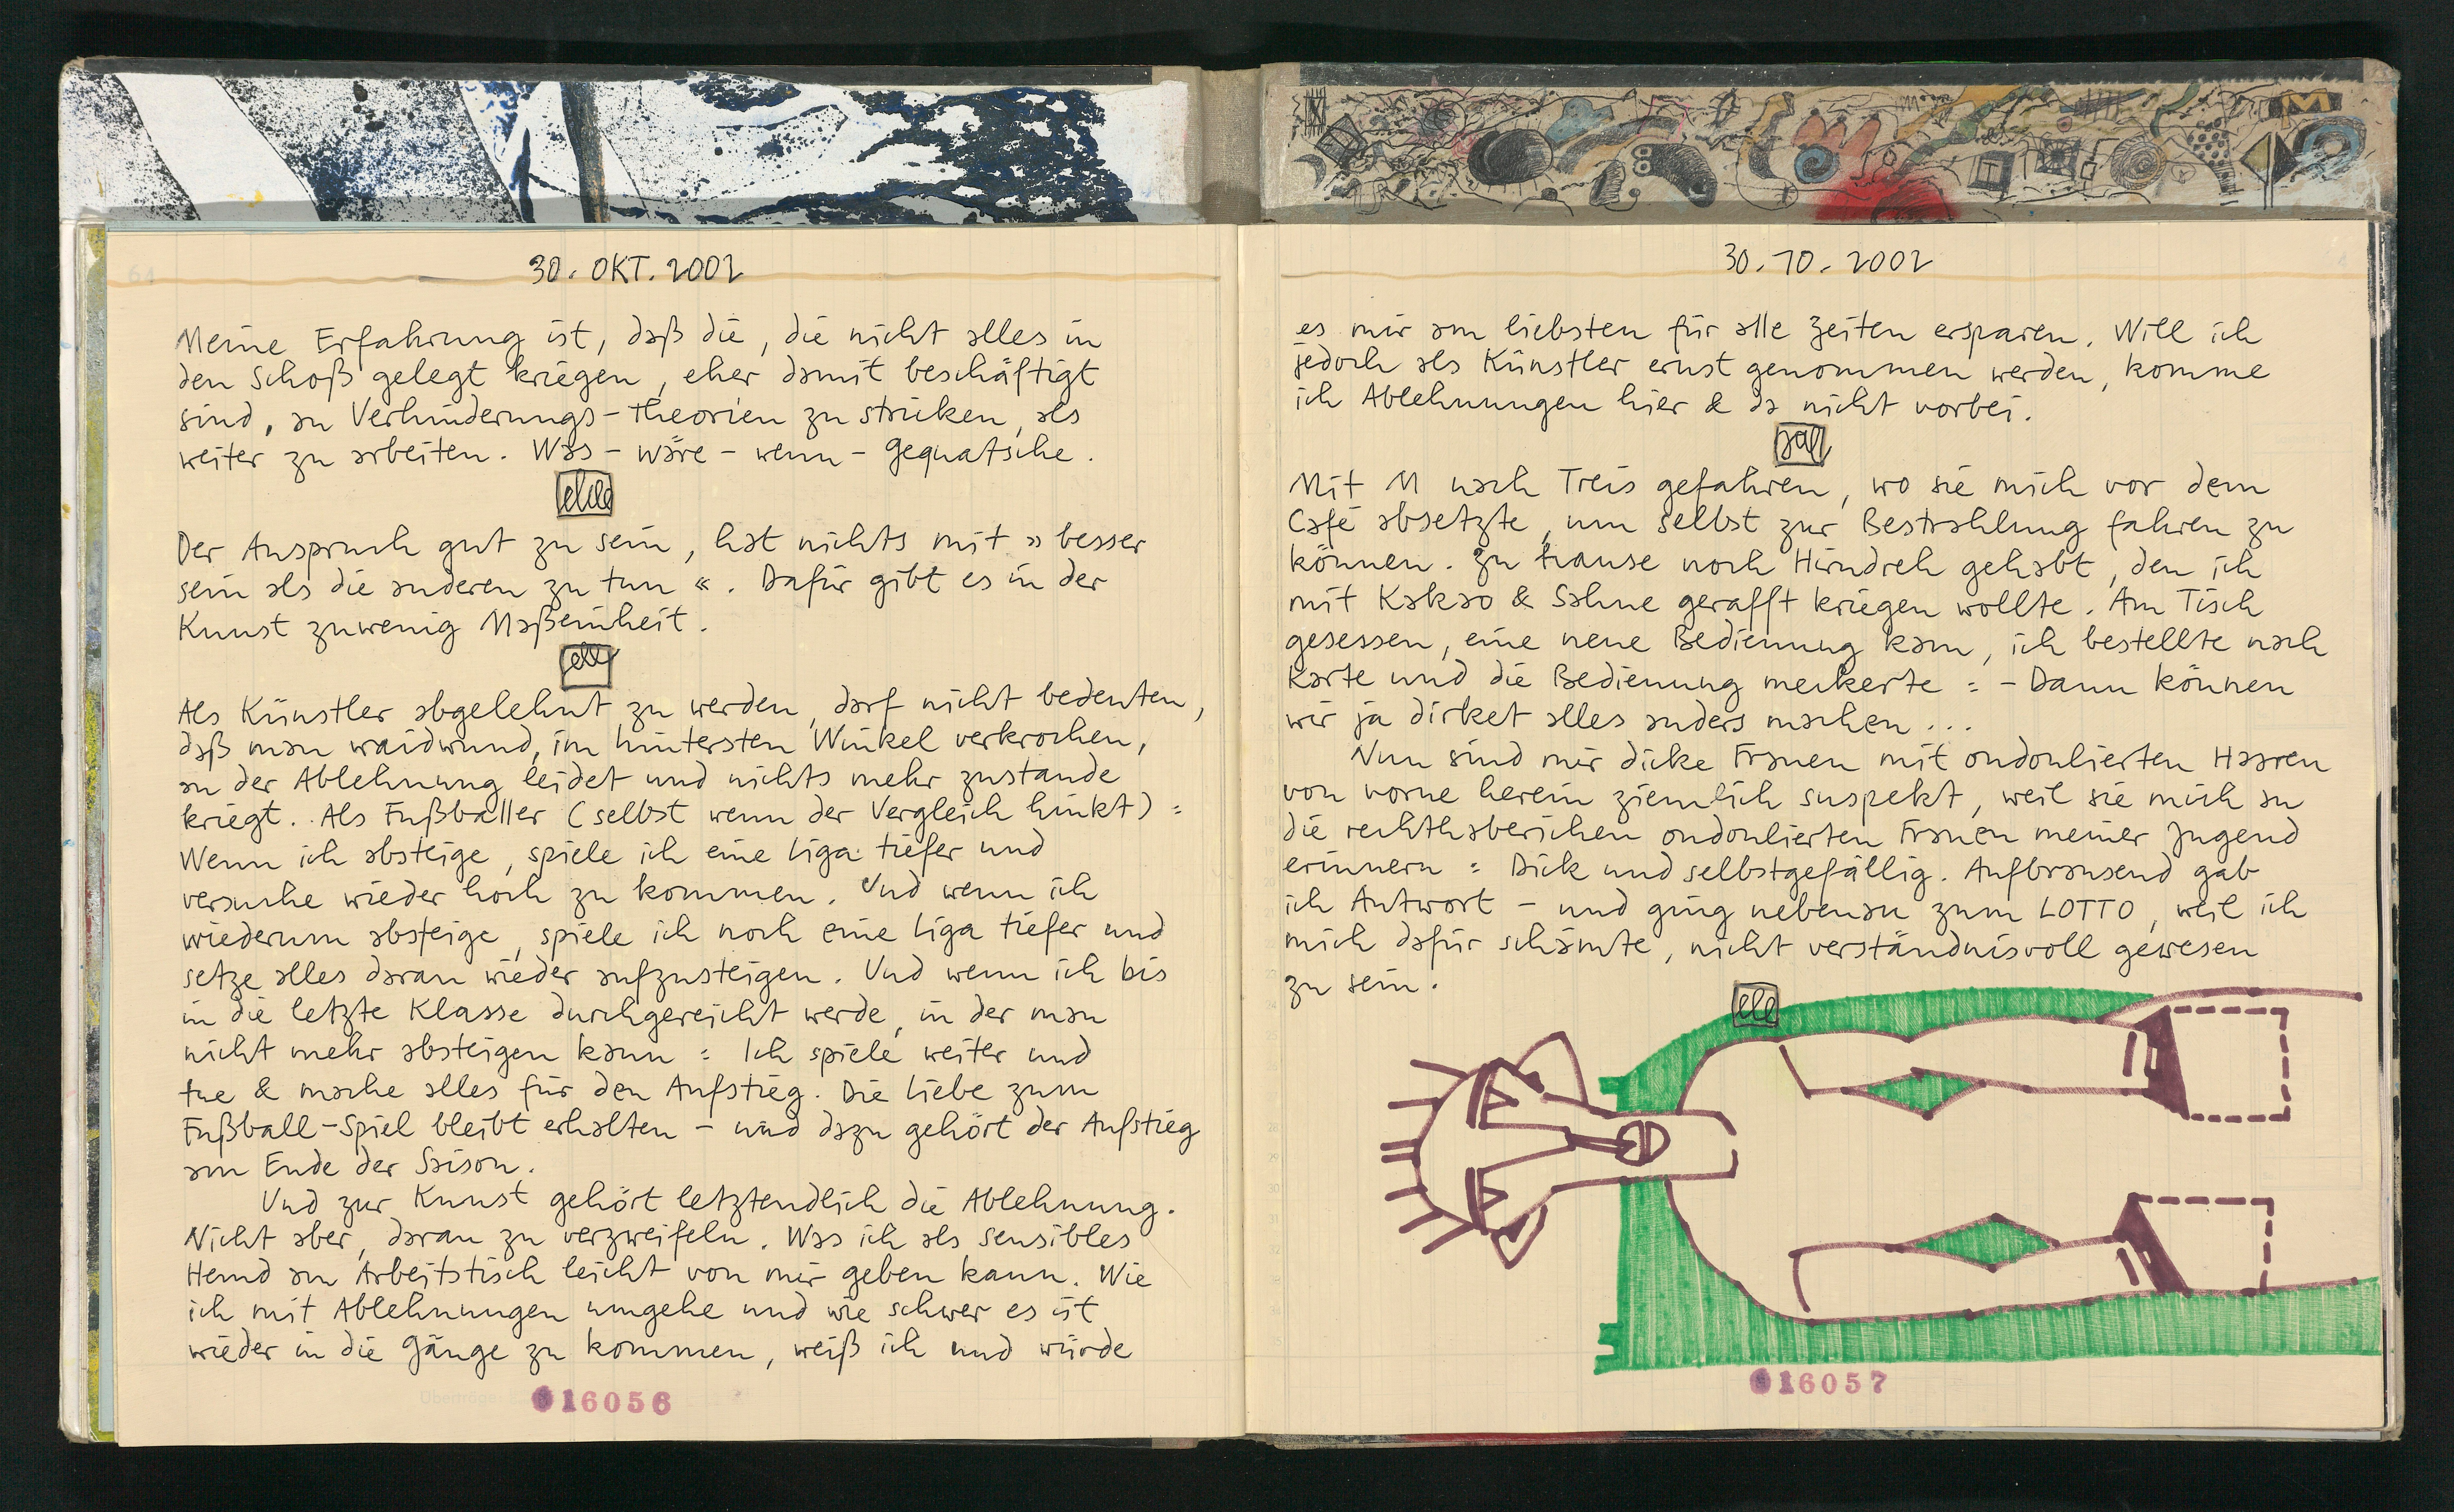 30. OKT. 2002
Meine Erfahrung ist, daß die, die nicht alles in
den Schoß gelegt kriegen, eher damit beschäftigt
sind, an Verhinderungs-Theorien zu stricken, als
weiter zu arbeiten. Was-wäre-wenn-Gequatsche.
Der Anspruch gut zu sein, hat nichts mit »besser
sein als die anderen zu tun«. Dafür gibt es in der
Kunst zuwenig Maßeinheit.
Als Künstler abgelehnt zu werden, darf nicht bedeuten,
daß man waidwund, im hintersten Winkel verkrochen,
an der Ablehnung leidet und nichts mehr zustande
kriegt. Als Fußballer (selbst wenn der Vergleich hinkt):
Wenn ich absteige, spiele ich eine Liga tiefer und
versuche wieder hoch zu kommen. Und wenn ich
wiederum absteige, spiele ich noch eine Liga tiefer und
setze alles daran wieder aufzusteigen. Und wenn ich bis
in die letzte Klasse durchgereicht werde, in der man
nicht mehr absteigen kann: Ich spiele weiter und
tue & mache alles für den Aufstieg. Die Liebe zum
Fußball-Spiel bleibt erhalten - und dazu gehört der Aufstieg
am Ende der Saison.
Und zur Kunst gehört letztendlich die Ablehnung.
Nicht aber, daran zu verzweifeln. Was ich als sensibles
Hemd am Arbeitstisch leicht von mir geben kann. Wie
ich mit Ablehnungen umgehe und wie schwer es ist
wieder in die Gänge zu kommen, weiß ich und würde
16056
30.10.2002
es mir am liebsten für alle Zeiten ersparen. Will ich
jedoch als Künstler ernst genommen werden, komme
ich Ablehnungen hier & da nicht vorbei.
Mit M nach Treis gefahren, wo sie mich vor dem
Café absetzte, um selbst zur Bestrahlung fahren zu
können. Zu Hause noch Hirndreh gehabt, den ich
mit Kakao & Sahne gerafft kriegen wollte. Am Tisch
gesessen, eine neue Bedienung kam, ich bestellte nach
Karte und die Bedienung meckerte: - Dann können
wir ja dirket alles anders machen...
Nun sind mir dicke Frauen mit ondoulierten Haaren
von vorne herein ziemlich suspekt, weil sie mich an
die rechthaberichen ondoulierten Frauen meiner Jugend
erinnern: Dick und selbstgefällig. Aufbrausend gab
ich Antwort - und ging nebenan zum LOTTO, weil ich
mich dafür schämte, nicht verständnisvoll gewesen
zu sein.
16057